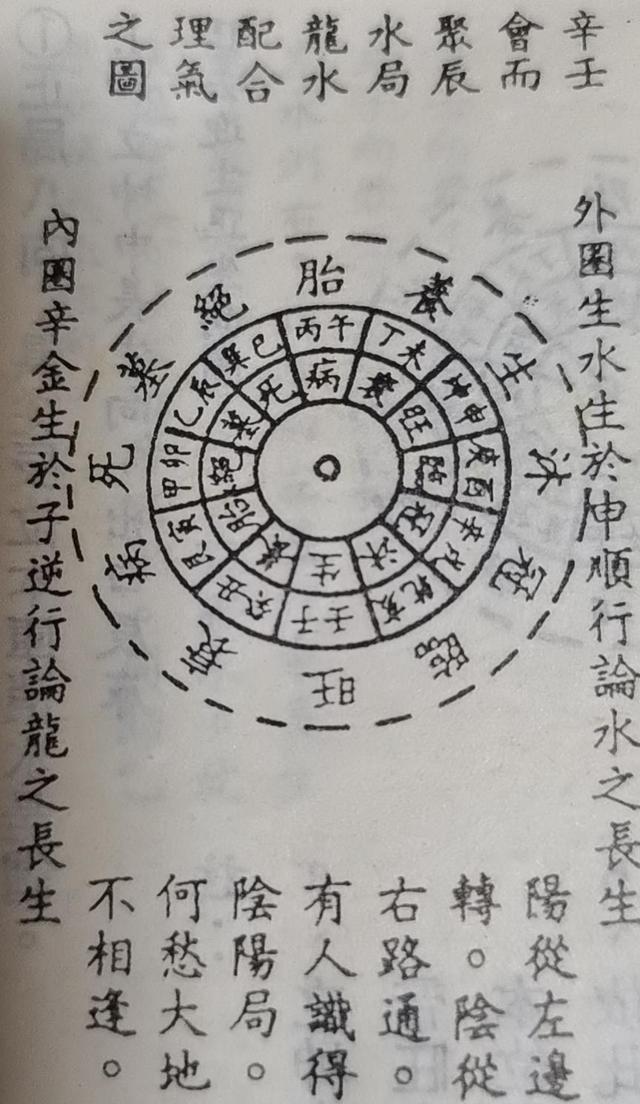 辛壬
會而
聚辰
水局
龍水
配合
理氣
之圖
外圈生水生於申順行論水之長生
胎
養
生
沐
冠
臨
旺
衰
病
死
墓
絕
丙午
丁未
坤申
庚酉
辛戌
乾亥
壬子
癸丑
艮寅
甲卯
乙辰
巽巳
病
衰
旺
臨
冠
沐
生
養
胎
絕
墓
死
內圈辛金生於子逆行論龍之長生
陽從左邊
轉。陰從
右路通。
有人識得
陰陽局。
何愁大地
不相逢。